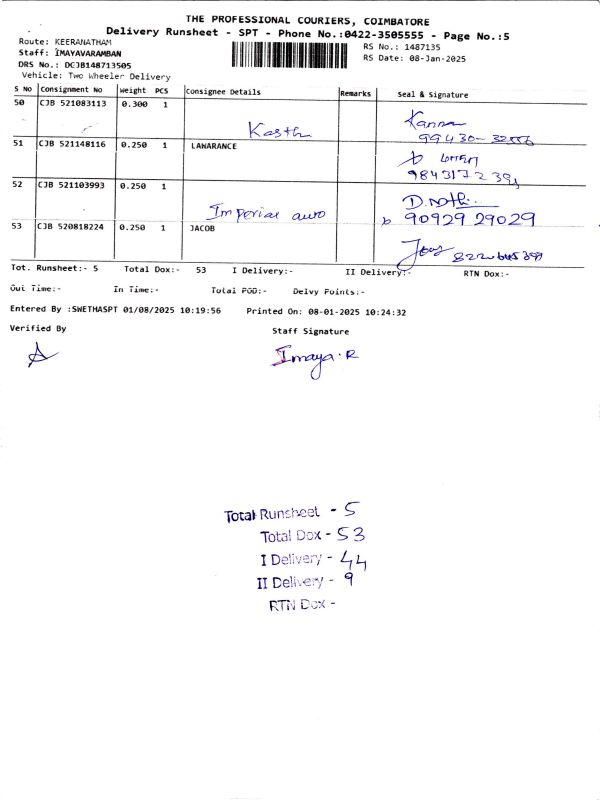 THE PROFESSIONAL COURIERS, COIMBATORE
Delivery Runsheet - SPT - Phone No.:0422-3505555 - Page No.:5
Route: KEERANATHAM
RS No.: 1487135
Staff: IMAYAVARAMBAN
RS Date: 08-Jan-2025
DRS No.: DCJB148713505
Vehicle: Two Wheeler Delivery
S No Consignment No Weight PCS Consignee Details Remarks Seal & Signature
50 CJB 521083113 0.300 1
Kasthu Kanna
99430-
51 CJB 521148116 0.250 1 LAWARANCE
52 CJB 521103993 0.250 1
Imperial auto 90929 29029
53 CJB 520818224 0.250 1 JACOB
Tot. Runsheet:- 5 Total Dox:- 53 I Delivery:- II Delivery:- RTN Dox:-
Out Time:- In Time:- Total POD:- Delvy Points:-
Entered By :SWETHASPT 01/08/2025 10:19:56 Printed On: 08-01-2025 10:24:32
Verified By Staff Signature
Imaya.R
Total Runsheet - 5
Total Dox - 53
I Delivery - 44
II Delivery - 9
RTN Dox -